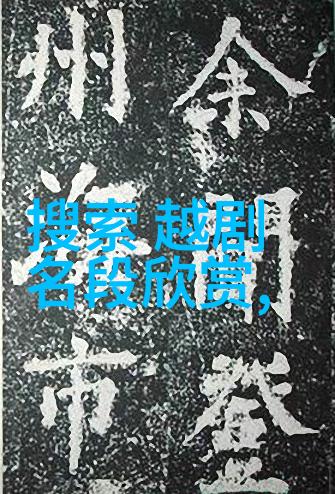 搜索 越剧
名段欣赏,
余 登
州 市